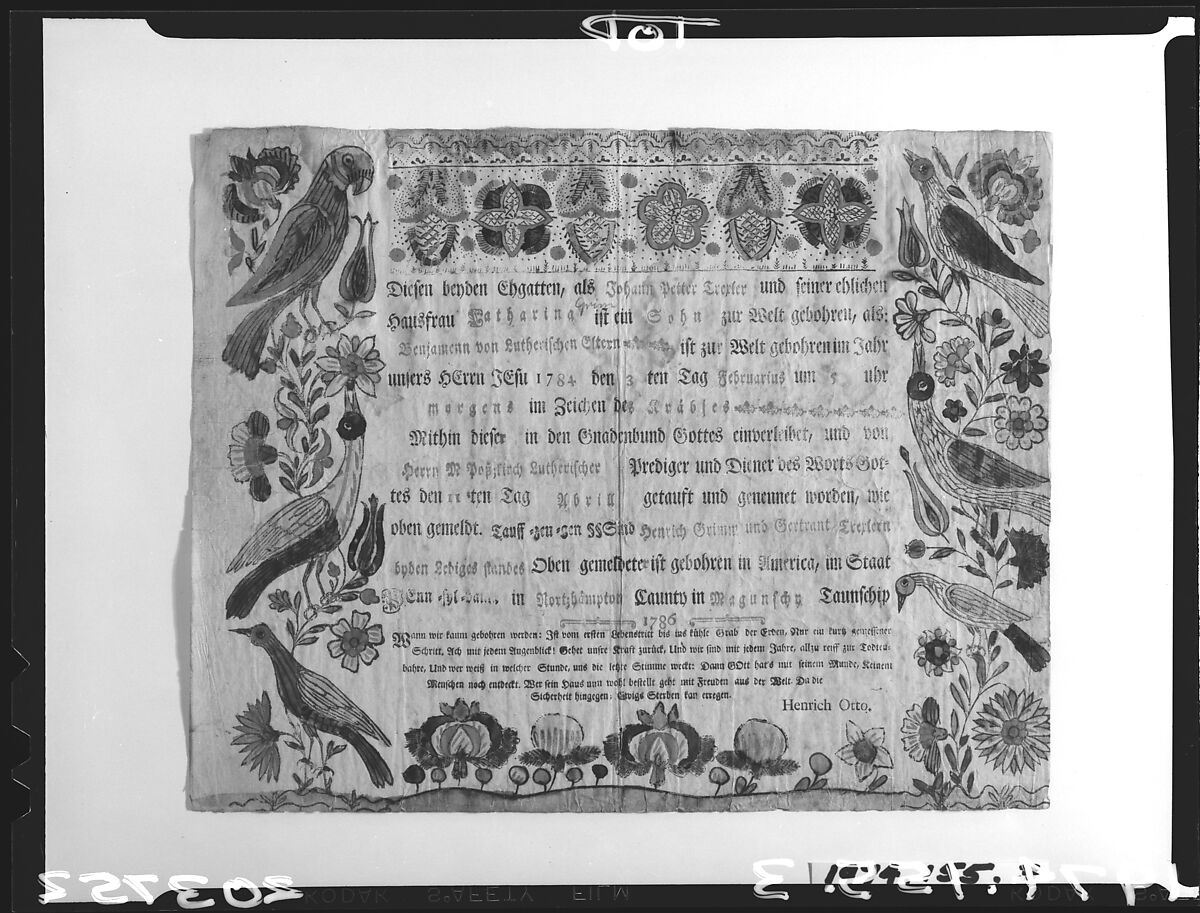 TOP
Diesen beyden Ehgatten, als Johann Petter Trexler und seiner ehlichen
Grim
Hausfrau Catharina ist ein Sohn zur Welt gebohren, als:
Benjamenn von Lutherischen Eltern ist zur Welt gebohren im Jahr
unsers HErrn JEsu 1784 den 3 ten Tag Februarius um 5 uhr
morgens im Zeichen des Kräbses
Mithin dieser in den Gnadenbund Gottes einverleibet, und von
Herrn Lutherischer Prediger und Diener des Worts Got-
tes den 11 ten Tag Abrill getauft und genennet worden, wie
oben gemeldt. Tauff-zeu-gen Sind Henrich Grimm und Gertraut Trexlern
byden Lediges standes Oben gemeldeter ist gebohren in America, im Staat
in Northhämpton Caunty in Magunschy Taunschip
1786
Wann wir kaum gebohren werden: Ist vom ersten Lebenstritt bis ins kühle Grab der Erden, Nur ein kurtz gemessener
Schritt, Ach mit jedem Augenblick! Gehet unsre Kraft zurück, Und wir sind mit jedem Jahre, allzu reiff zur Todten-
bahre, Und wer weiß in welcher Stunde, uns die letzte Stimme weckt: Dann GOtt hat's mit seinem Munde, Keinem
Menschen noch entdeckt. Wer sein Haus nun wohl bestellt geht mit Freuden aus der Welt. Da die
Sicherheit hingegen; Ewigs Sterben kan erregen.
Henrich Otto.
257302
KODAK SAFETY FILM